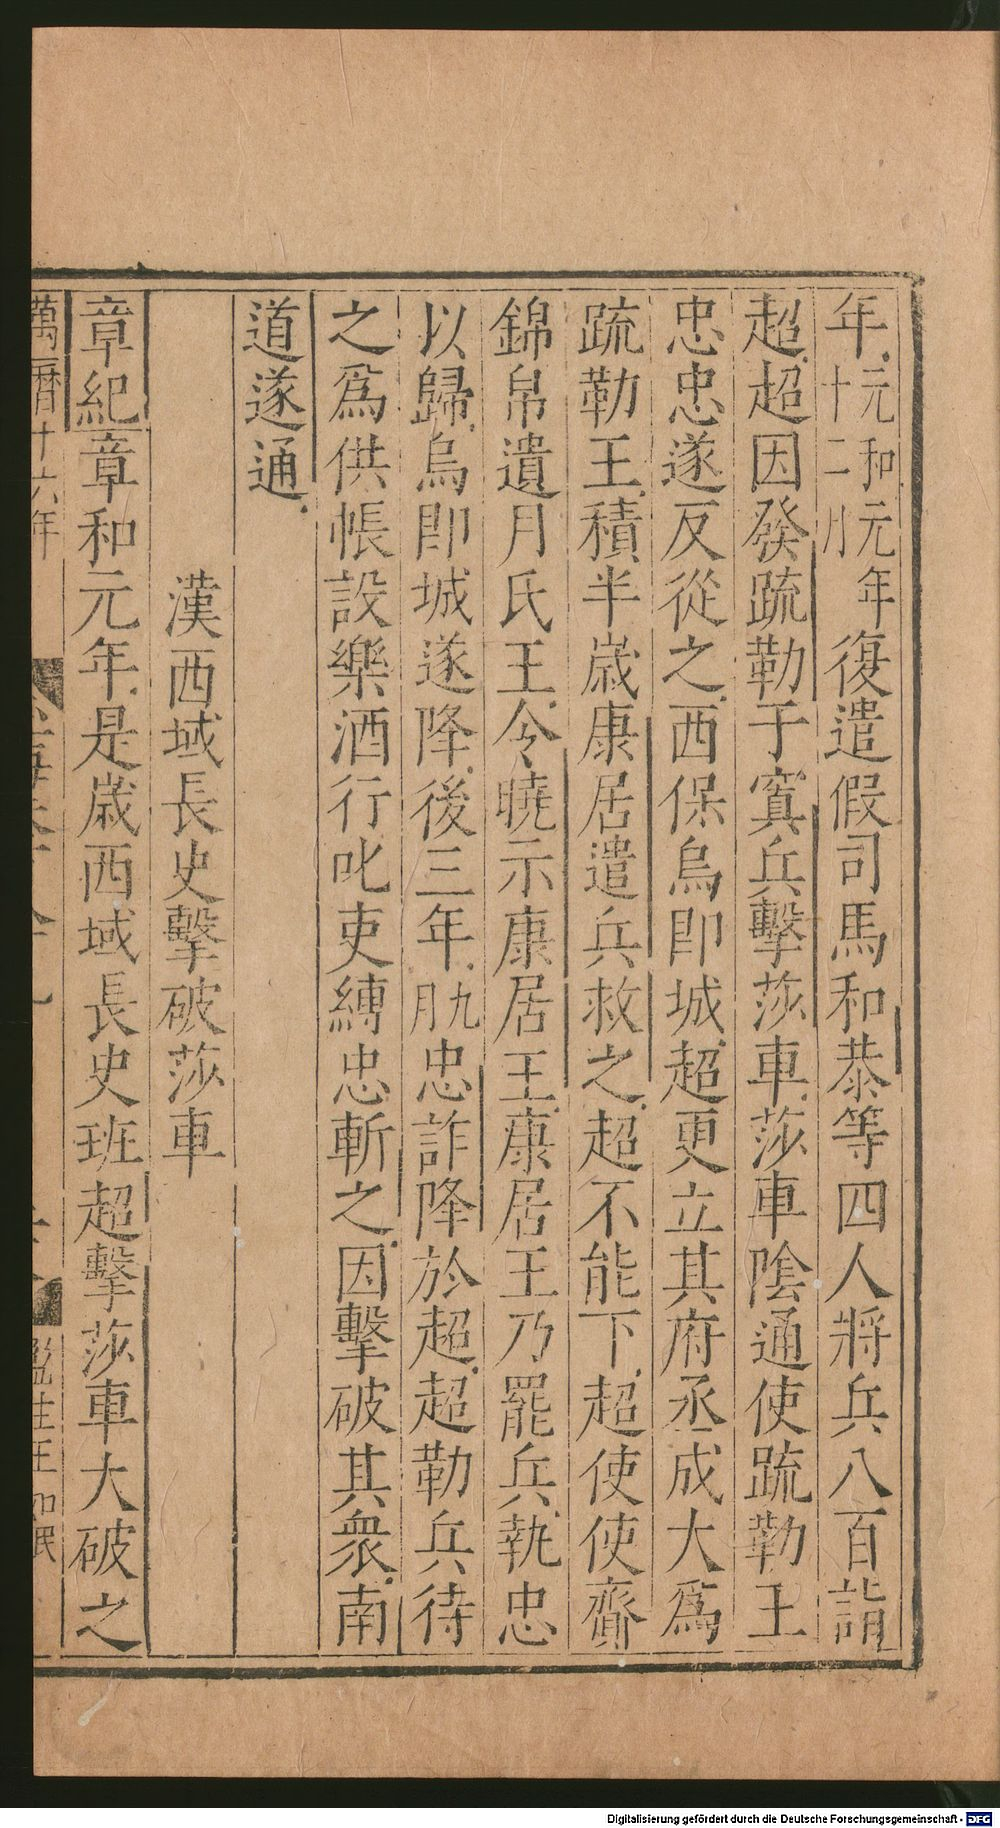 年元和元年十二月復遣假司馬和恭等四人將兵八百詣
超超因發疏勒于窴兵擊莎車莎車陰通使疏勒王
忠忠遂反從之西保烏卽城超更立其府丞成大爲
疏勒王積半歲康居遣兵救之超不能下超使使齎
錦帛遺月氏王令曉示康居王康居王乃罷兵執忠
以歸烏卽城遂降後三年九月忠詐降於超超勒兵待
之爲供帳設樂酒行叱吏縛忠斬之因擊破其衆南
道遂通
漢西域長史擊破莎車
章紀章和元年是歲西域長史班超擊莎車大破之
萬曆十六年
監生王
Digitalisierung gefördert durch die Deutsche Forschungsgemeinschaft - DFG